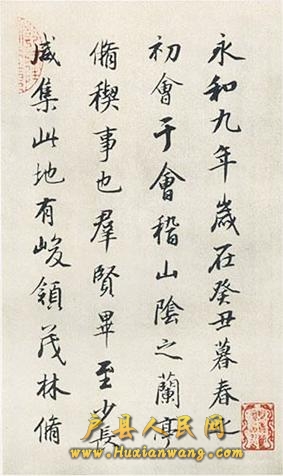 永和九年歲在癸丑暮春之
初會于會稽山陰之蘭亭
脩稧事也羣賢畢至少長
咸集此地有峻領茂林脩
户县人民网
www.Huxianwang.com